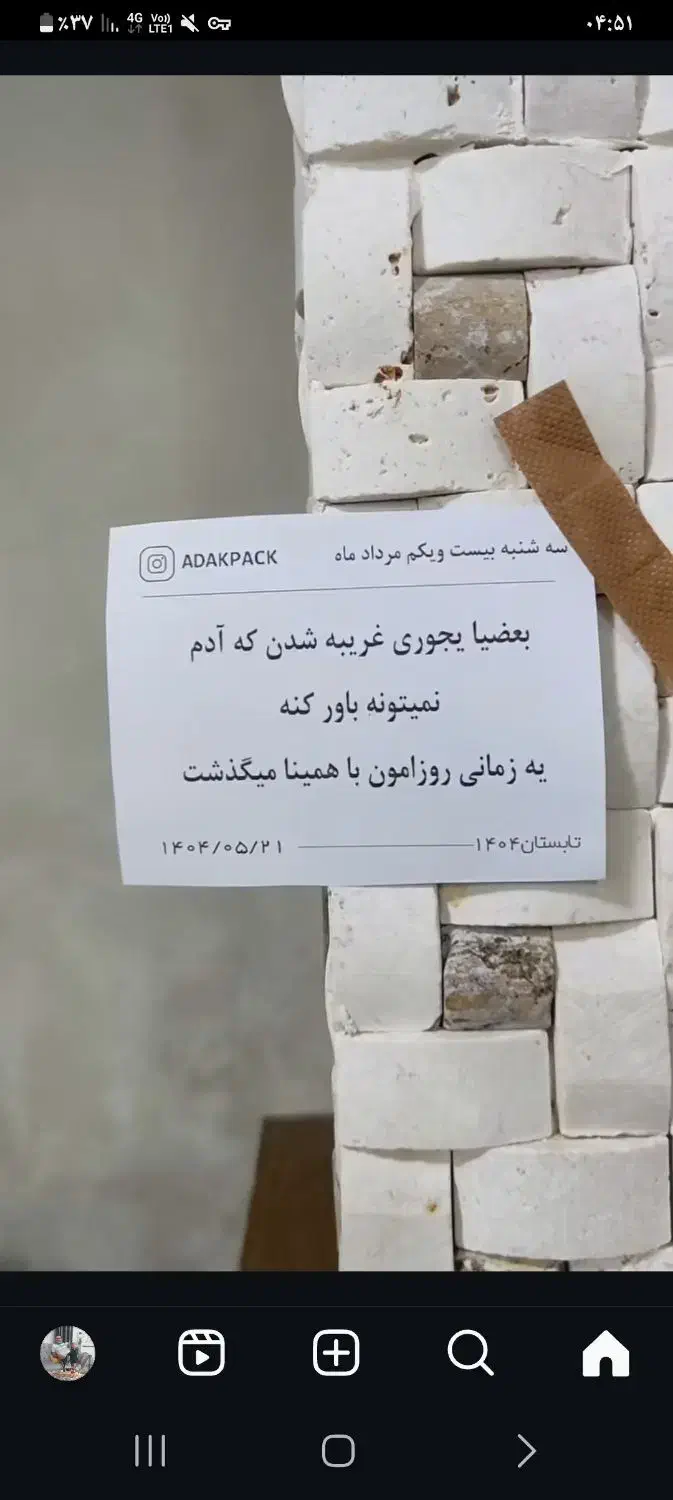 ٪۳۷ 4G Vo) LTE1 ۰۴:۵۱
سه شنبه بیست ویکم مرداد ماه ADAKPACK
بعضیا یجوری غریبه شدن که آدم
نمیتونه باور کنه
یه زمانی روزامون با همینا میگذشت
تابستان۱۴۰۴ ۱۴۰۴/۰۵/۲۱